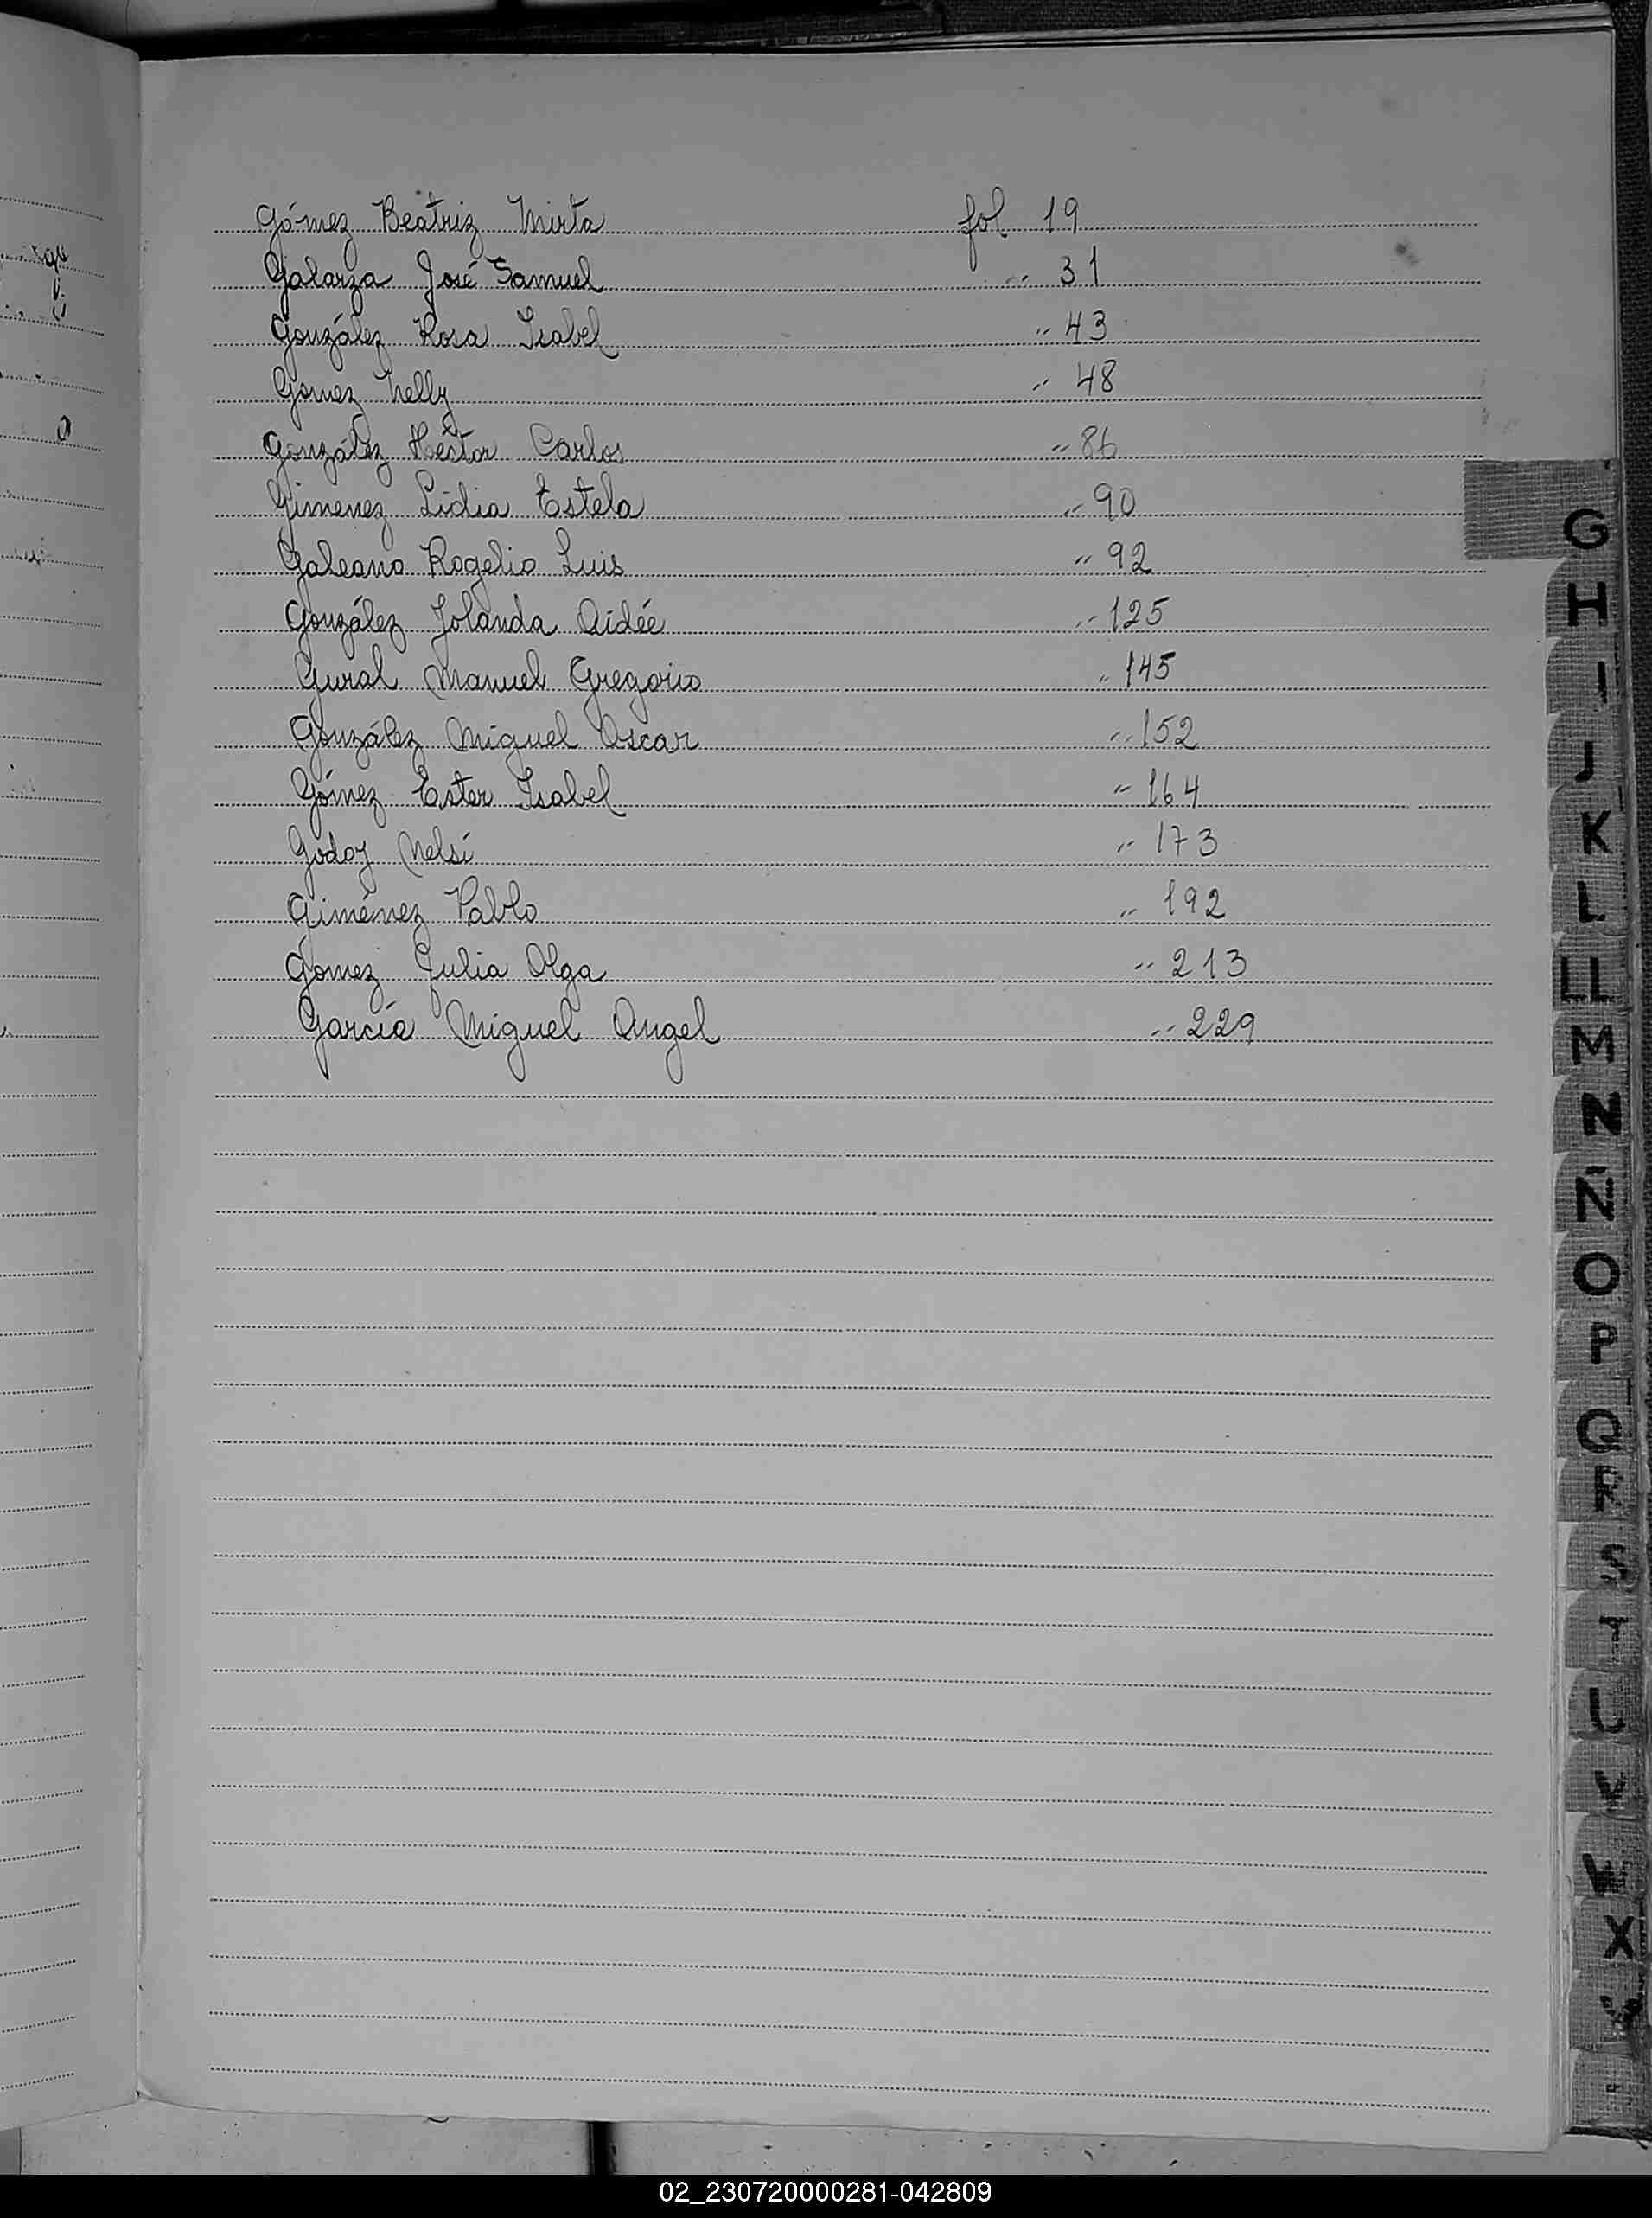 Gómez Beatriz Mirta fol 19
Galarza José Samuel " 31
González Rosa Isabel " 43
Gomez Nelly " 48
González Héctor Carlos " 86
Gimenez Lidia Estela " 90
Galeano Rogelio Luis " 92
González Iolanda Aidée " 125
Gural Manuel Gregorio " 145
González Miguel Oscar " 152
Gómez Ester Isabel " 164
Godoy Nelsi " 173
Giménez Pablo " 192
Gomez Julia Olga " 213
García Miguel Angel " 229
G
H
I
J
K
L
LL
M
N
Ñ
O
P
Q
R
S
T
U
V
W
X
02_230720000281-042809